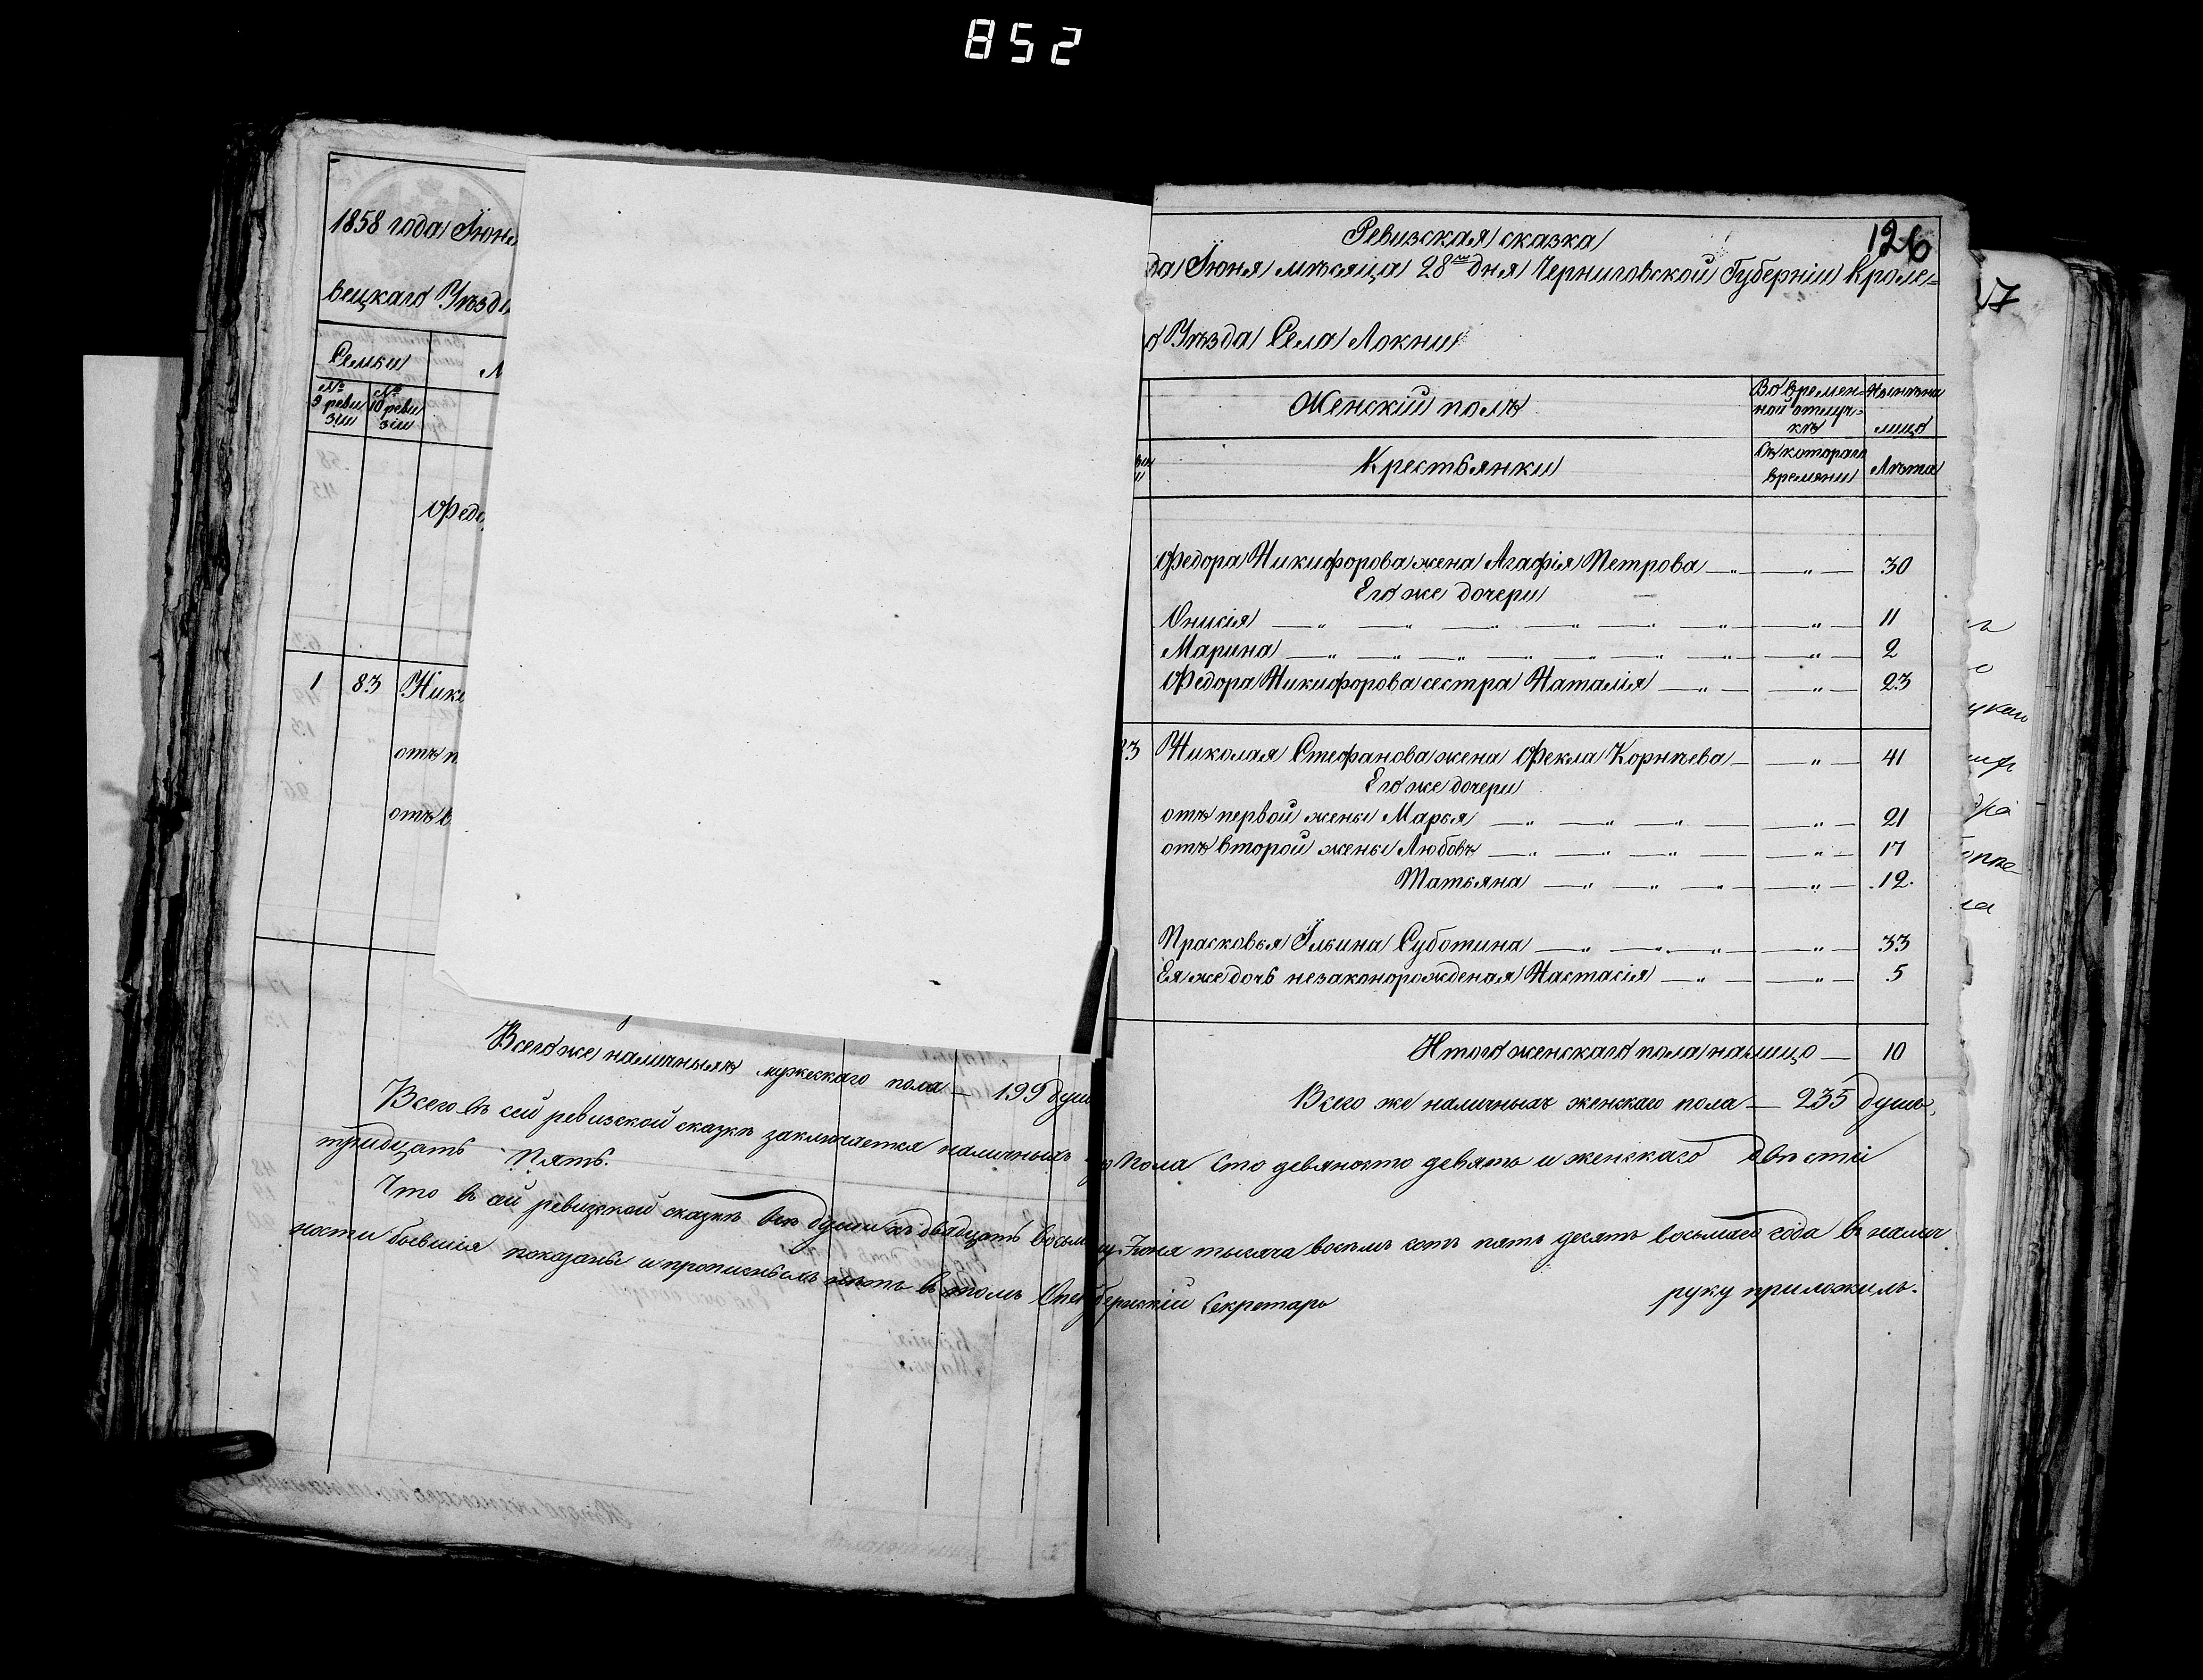 852
1858 года Іюня
вецкаго Уѣзда
Семьи
М
№ 9 ревизіи
№ 10 ревизіи
Федо
1 83 Нико
отъ п
отъ в
Всего же наличныхъ мужескаго пола — 199 душъ
Всего въ сей ревизской сказкѣ заключается наличныхъ
тридцать пять.
Что въ сей ревизской сказкѣ всѣ души къ двадцать восьм
ности бывшія показаны и прописныхъ нѣтъ въ томъ
126
Ревизская сказка
да Іюня мѣсяца 28го дня Черниговской Губерніи Кроле=
о Уѣзда Села Локни
Женскій полъ
Во времен=
ной отлуч=
кѣ
Нынѣ на
лицо
Крестьянки
Съ котораго
времяни
Лѣта
Федора Никифорова жена Агафія Петрова — „ — — „ — 30
Его же дочери
Онисія — „ — „ — „ — „ — „ — „ — — „ — 11
Марина — „ — „ — „ — „ — „ — „ — „ — — „ — 2
Федора Никифорова сестра Наталія — „ — — „ — 23
3 Николая Стефанова жена Фекла Корнѣева — — „ — 41
Его же дочери
отъ первой жены Марья — „ — „ — „ — — „ — 21
отъ второй жены Любовь — „ — „ — „ — — „ — 17
Татьяна — „ — „ — „ — — „ — 12.
Прасковья Ільина Суботина — „ — „ — „ — — „ — 33
Ея же дочь незаконорожденая Настасія — „ — — „ — 5
Итого женскаго пола на лицо — 10
Всего же наличныхъ женскаго пола — 235 душъ.
пола сто девяносто девять и женскаго двѣсти
Іюня тысяча восемь сотъ пять десять восьмаго года въ налич
Секретарь
руку приложилъ.